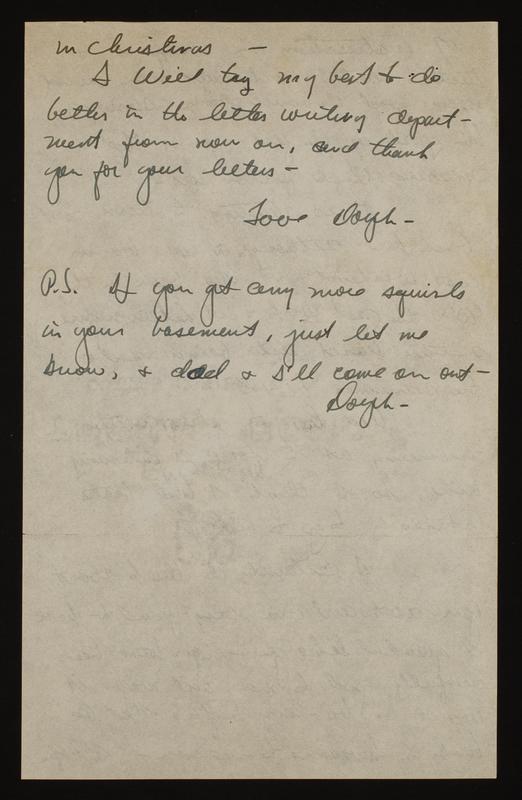 in Christmas —
I Will try my best to do
better in the letter writing depart-
ment from now on, and thank
you for your letters -
Love Doyph -
P.S. If you get any more squirls
in your basement, just let me
know, & dad & I'll come on out -
Doyph -